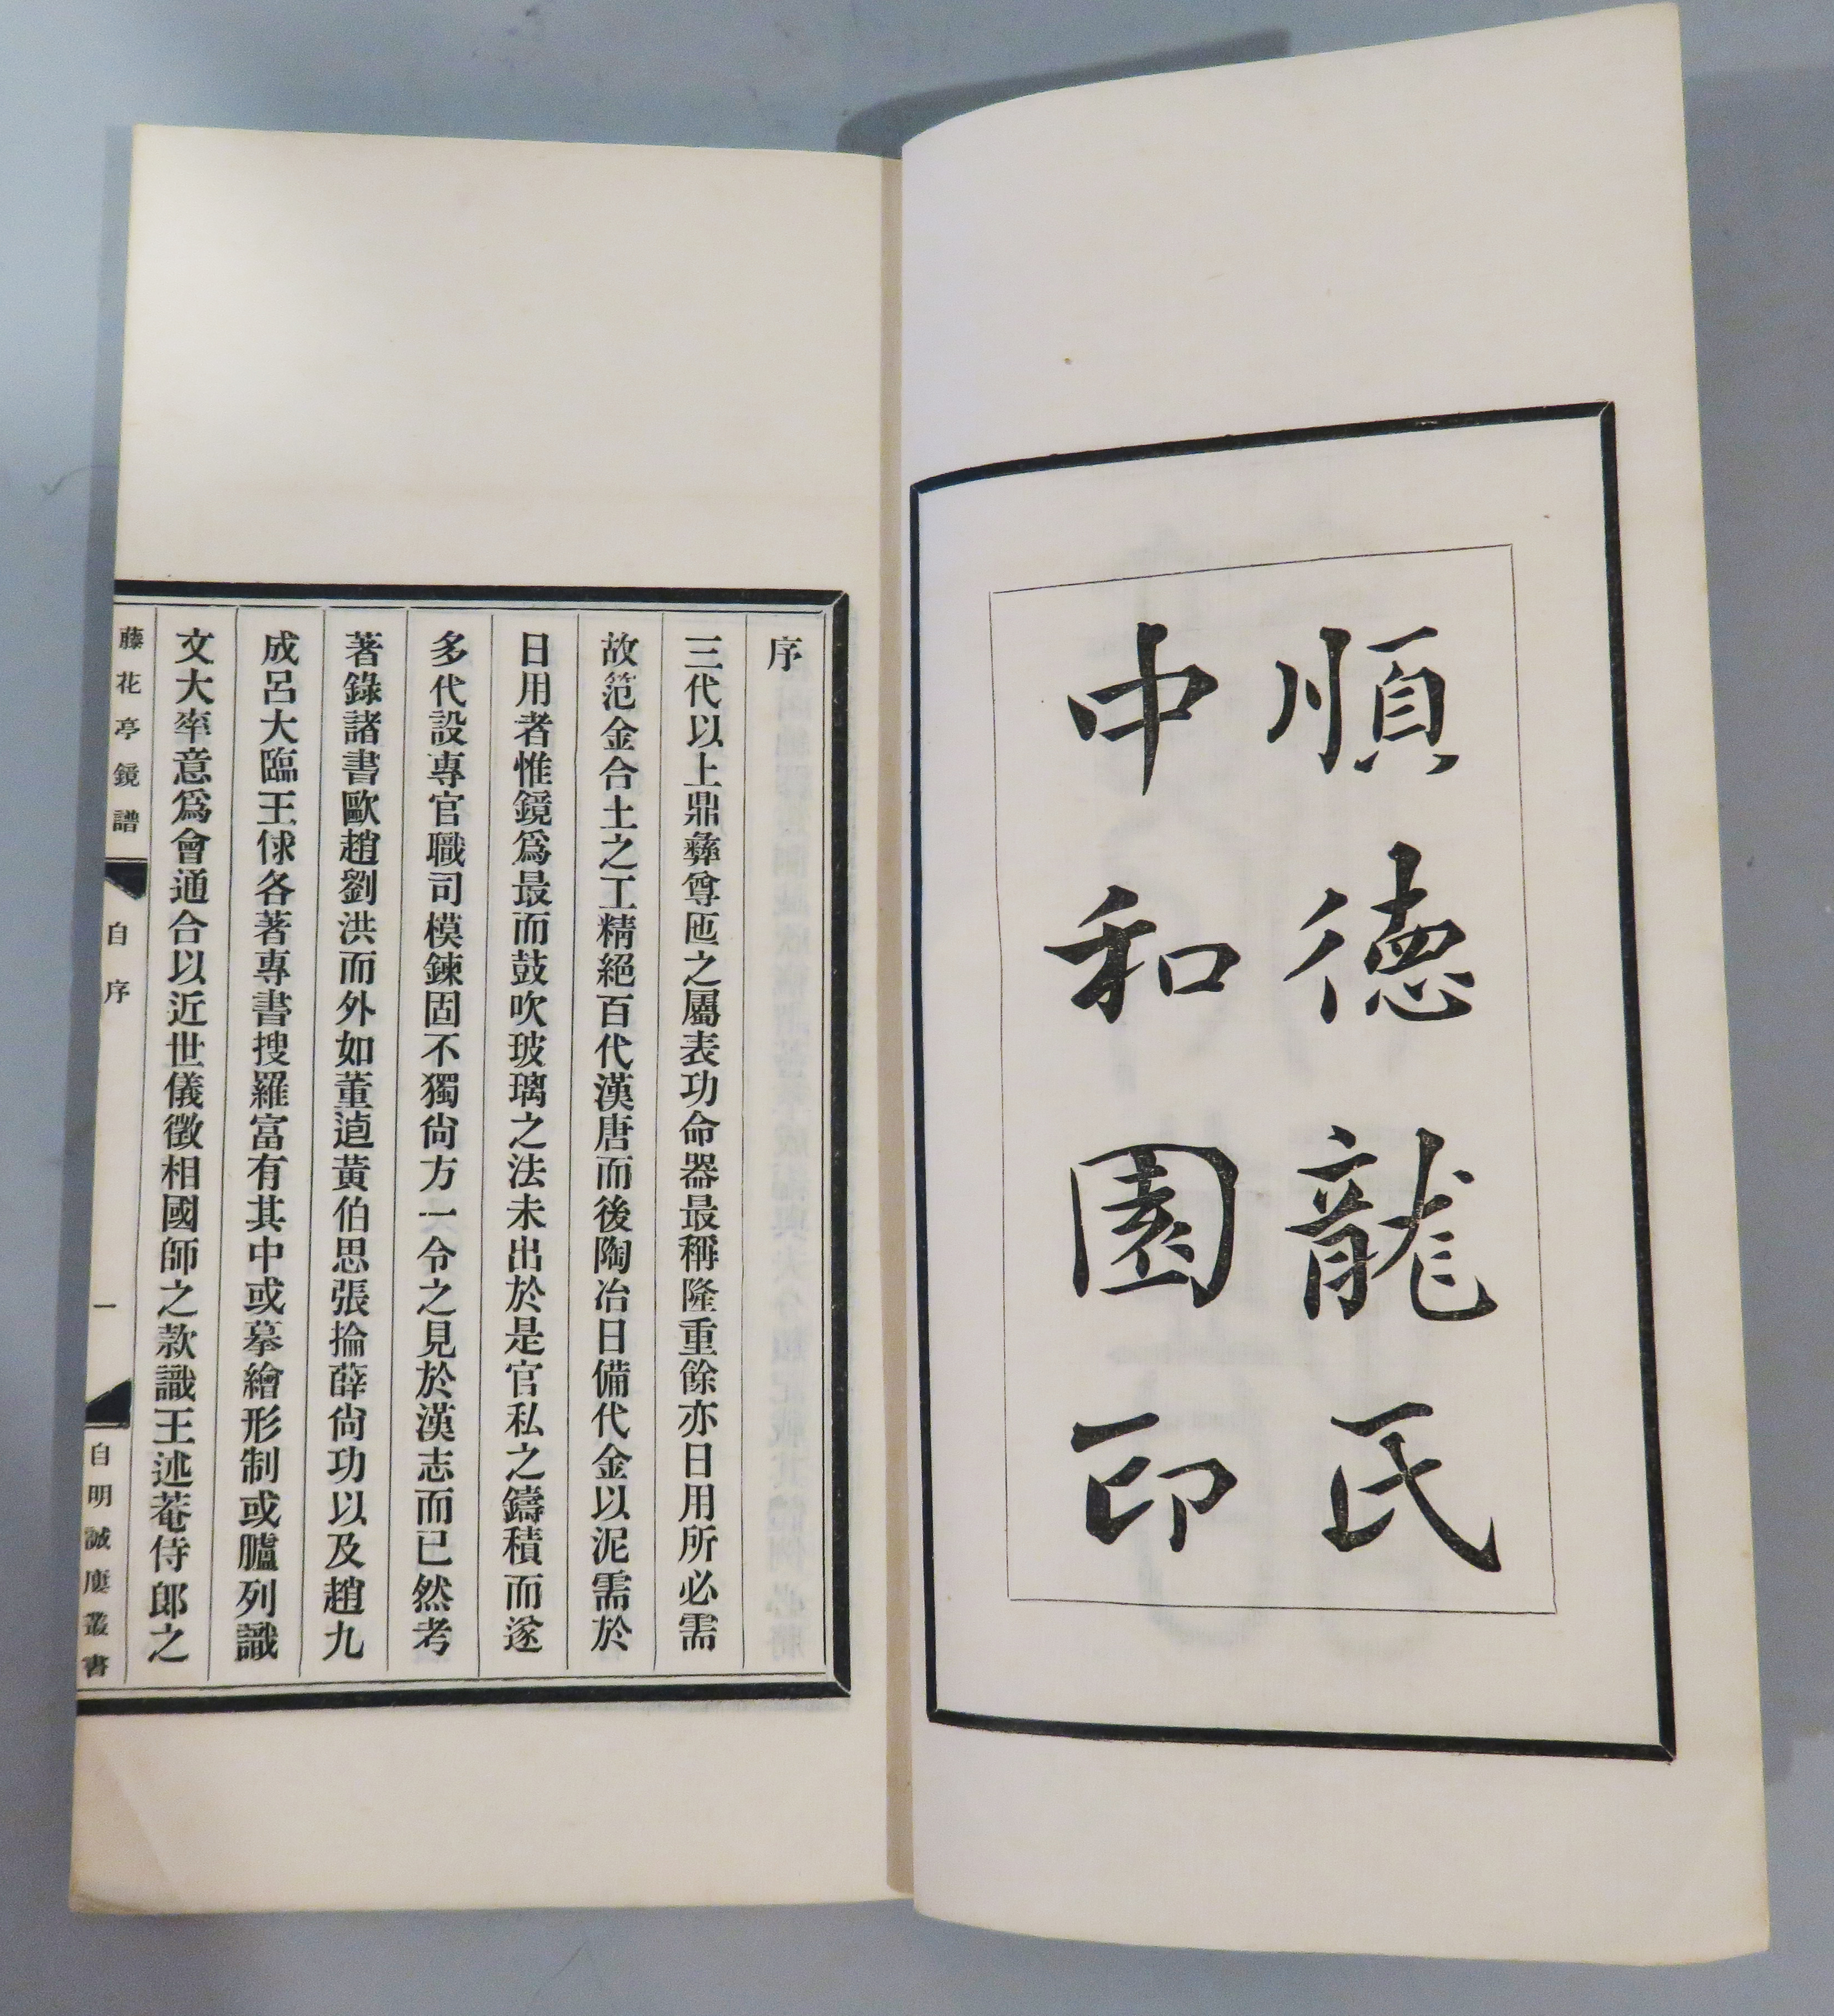 順德龍氏
中和園印
序
三代以上鼎彝尊匜之屬表功命器最稱隆重餘亦日用所必需
故范金合土之工精絕百代漢唐而後陶冶日備代金以泥需於
日用者惟鏡爲最而鼓吹玻璃之法未出於是官私之鑄積而遂
多代設專官職司模鍊固不獨尙方一令之見於漢志而已然考
著錄諸書歐趙劉洪而外如董逌黃伯思張掄薛尙功以及趙九
成呂大臨王俅各著專書搜羅富有其中或摹繪形制或臚列識
文大率意爲會通合以近世儀徵相國師之款識王述菴侍郎之
藤花亭鏡譜
自序
一
自明誠廔叢書